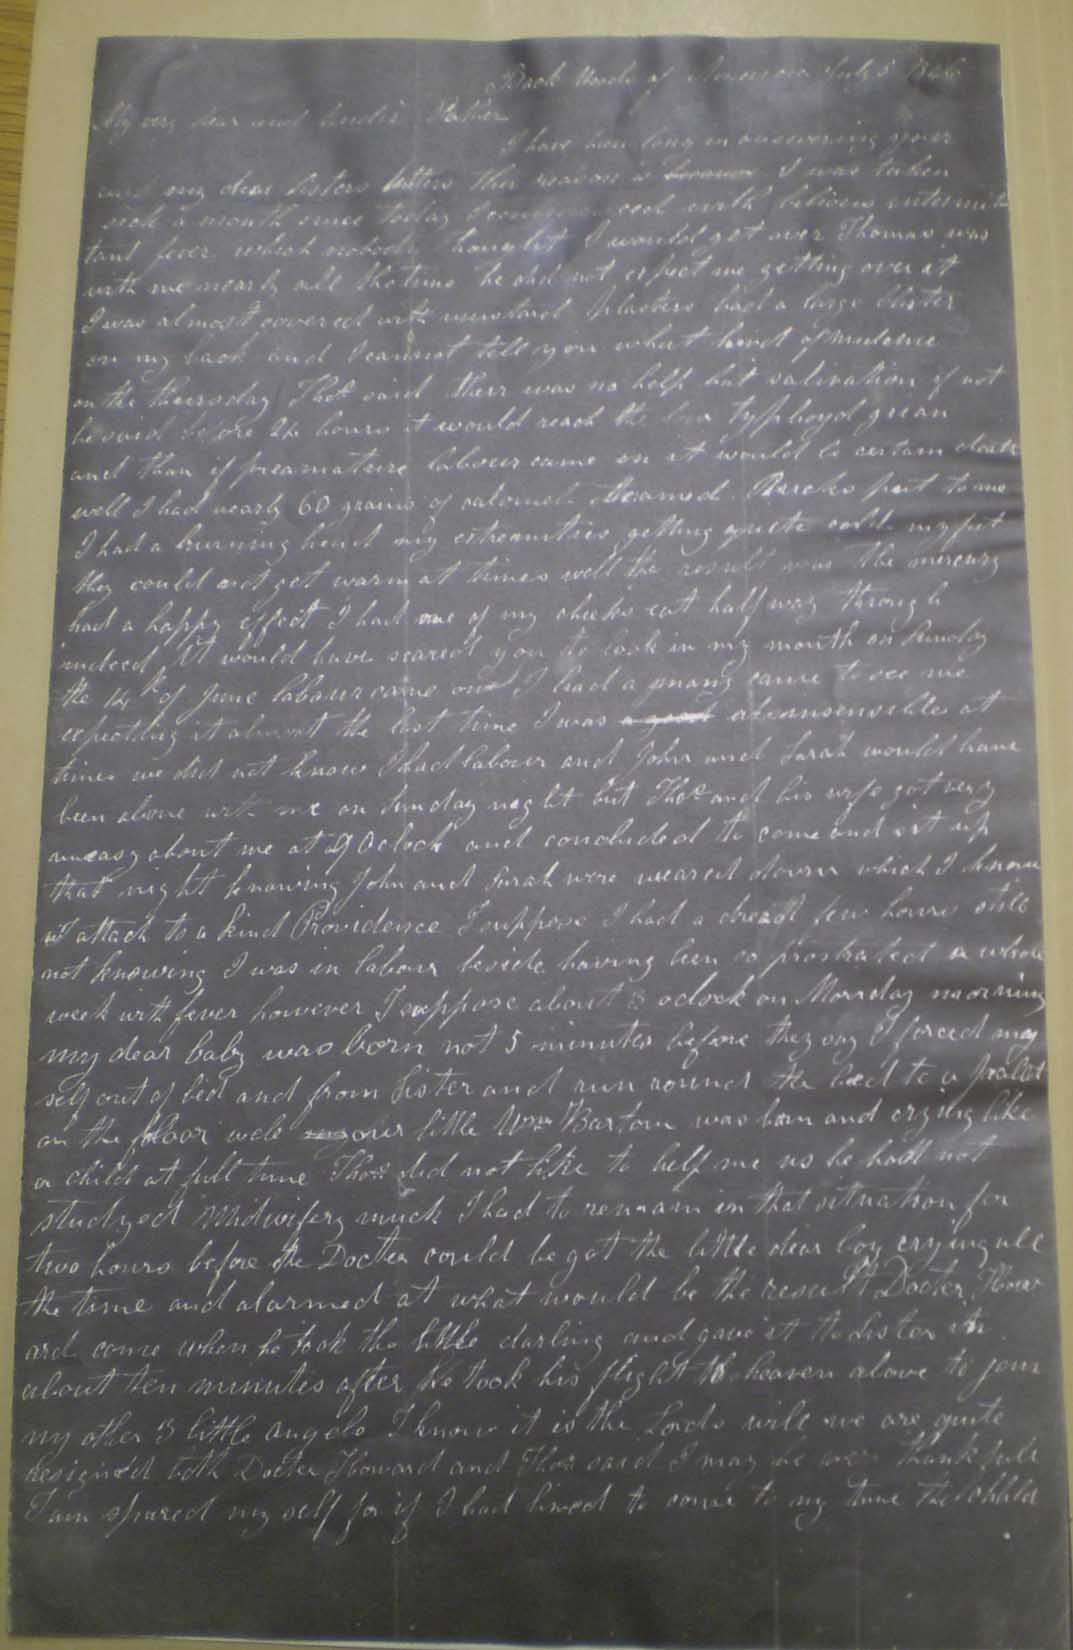 Back Woods of America July 5 1846
My very dear and kindest Father
I have been long in answering your
and my dear Sisters letters the reason is I was taken
sick a month since today I commenced with billious intermit
tant fever which nobody thought I would get over Thomas was
with me nearly all the time he did not expect me getting over it
I was almost covered with mustard plasters had a large blister
on my back and I cannot tell you what kind of medecine
on the thursday Thos said their was no help but salination if not
he said before 24 hours it would reach the low typhoyd grean
and than if preamature labour came on it would be certain death
well I had nearly 60 grains of calomel steamed Bricks put to me
I had a burning head my extreamities getting quite cold my feet
they could not get warm at times well the result was the mercury
had a happy effect I had one of my cheeks eat half way through
indeed it would have scared you to look in my mouth on Sunday
the 14th of June labour came on I had a many came to see me
expecting it almost the last time I was insensible at
times we did not know I had labour and John and Sarah would have
been alone with me on Sunday night but Thos and his wife got very
uneasy about me at 9 Oclock and concluded to come and sit up
that night knowing John and Sarah were weared down which I know
attach to a kind Providence I suppose I had a dreadfl few hours still
not knowing I was in labour beside having been so prostrated a whole
week with fever however I suppose about 3 oclock on Monday morning
my dear baby was born not 5 minutes before they say I forced my
self out of bed and from Sister and run round the bed to a pallet
on the floor well our little Wm Barton was born and crying like
a child at full time Thos did not like to help me as he had not
studyed Midwifery much I had to remain in that situation for
two hours before the Docter could be got the little dear boy crying all
the time and alarmed at what would be the result Docter How
ard came when he took the little darling and gave it to Sister in
about ten minutes after he took his flight to heaven above to join
my other 3 little angels I know it is the Lords will we are quite
resignd both Docter Howard and Thos said I may be very thankfull
I am spared my self for if I had lived to come to my time the child